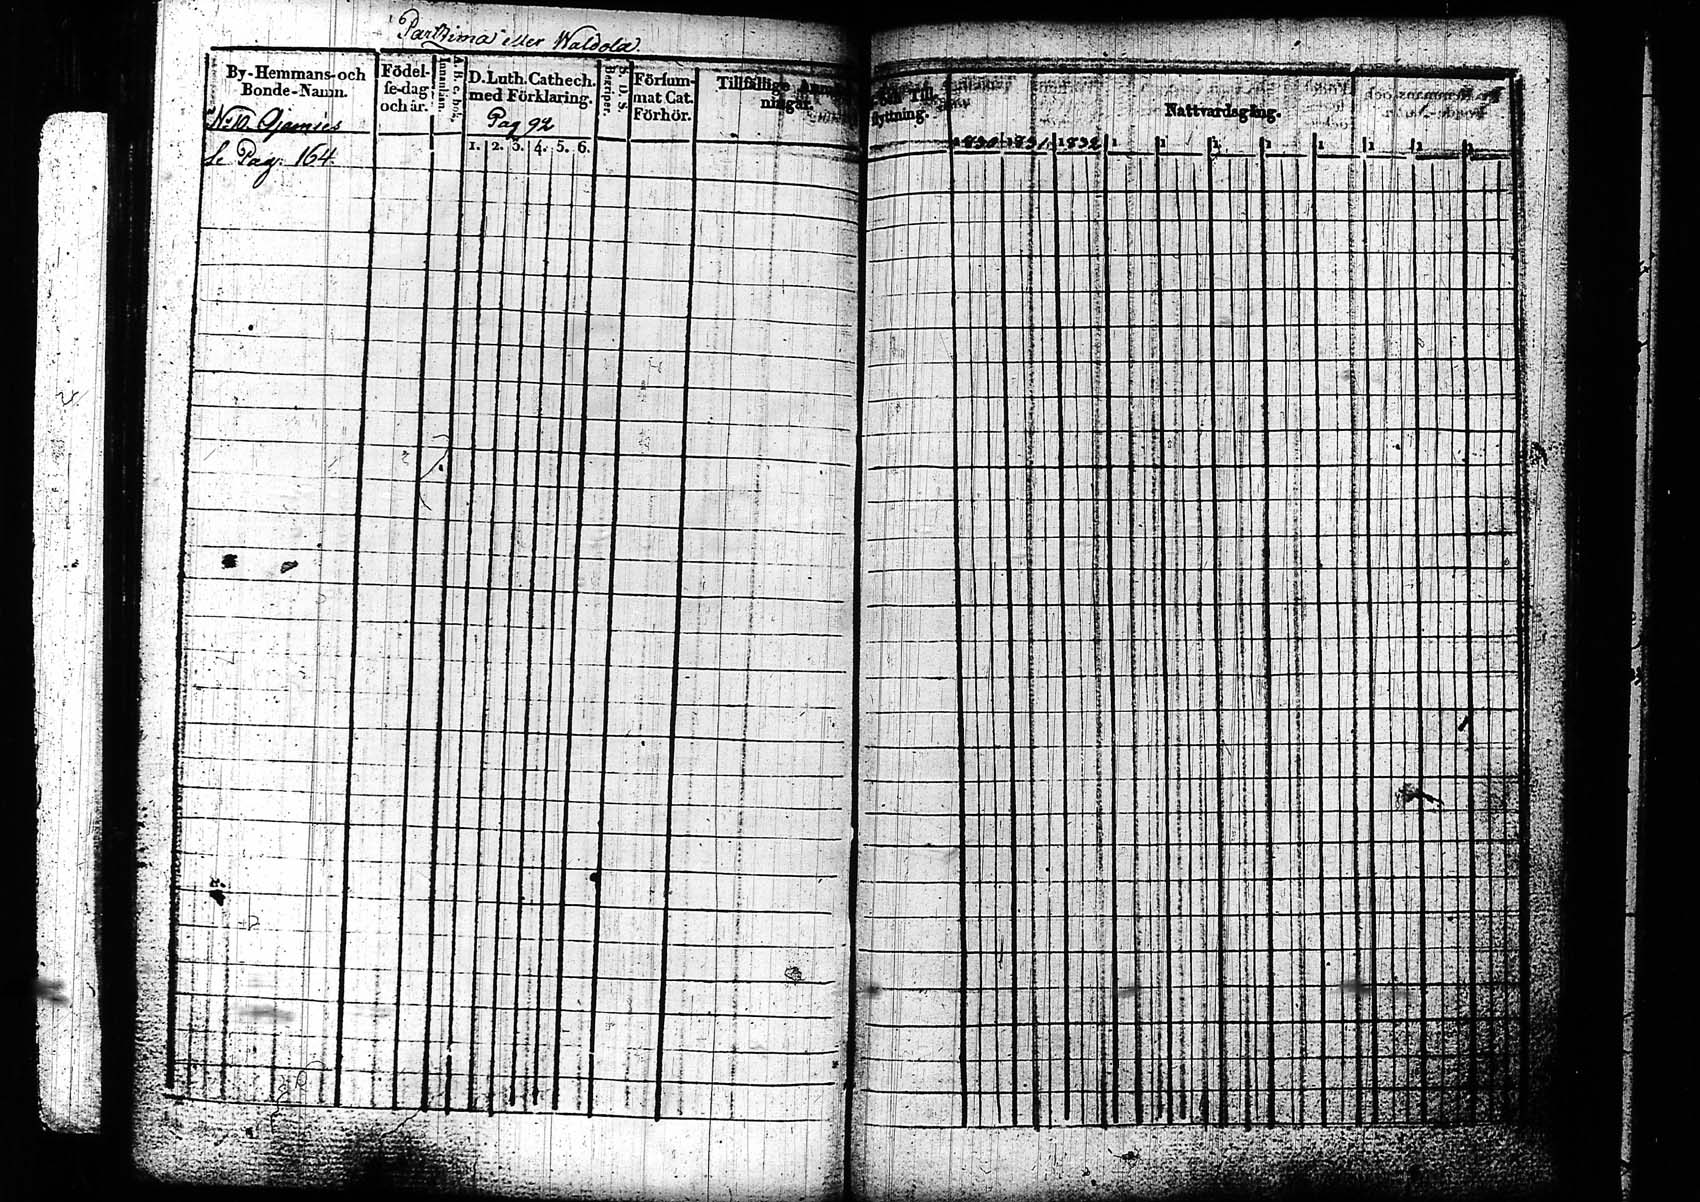 Parttima eller Waldola.
By-Hemmans-och
Bonde-Namn.
Födel-
se-dag
och år.
A. B. c. bok.
Innanläsn.
D. Luth. Cathech.
med Förklaring.
S. D. S.
Begriper.
Försum-
mat Cat.
Förhör.
Tillfällige
ningar.
och Till
flyttning.
Nattvardsgång.
No 10. Ojamies
Pag 92
1. 2. 3. 4. 5. 6.
1830 1831 1832 1 1 1 1 1 1 1 1
Se Pag: 164.